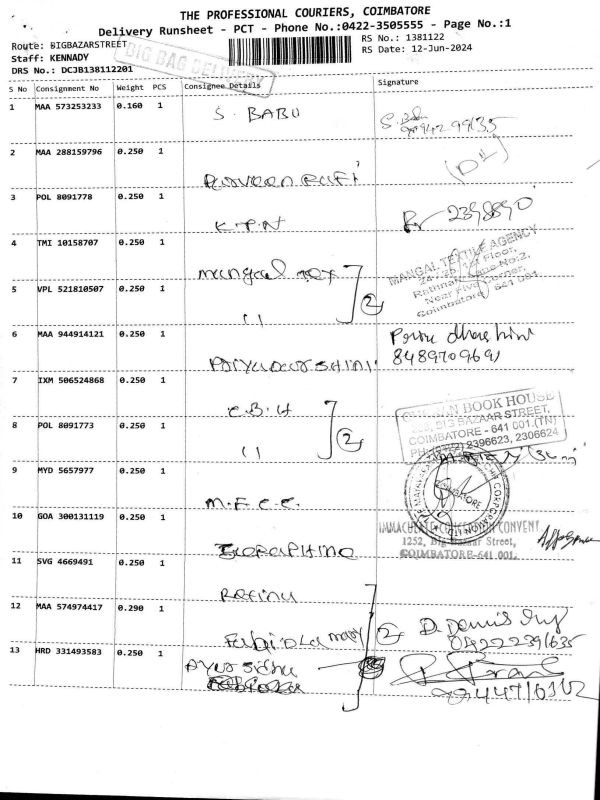 THE PROFESSIONAL COURIERS, COIMBATORE
Delivery Runsheet - PCT - Phone No.:0422-3505555 - Page No.:1
Route: BIGBAZARSTREET
RS No.: 1381122
Staff: KENNADY
RS Date: 12-Jun-2024
DRS No.: DCJB138112201
BIG BAG DELIVERY
S No Consignment No Weight PCS Consignee Details Signature
1 MAA 573253233 0.160 1 S. BABU
2 MAA 288159796 0.250 1
3 POL 8091778 0.250 1 K.T.N 2398890
4 TMI 10158707 0.250 1 mangal tex
MANGAL TEXTILE AGENCY
1st Floor,
Near Five Corner,
Coimbatore - 641 001
5 VPL 521810507 0.250 1 11 2
6 MAA 944914121 0.250 1 8489709691
7 IXM 506524868 0.250 1 C.B.H
BOOK HOUSE
BAZAAR STREET,
COIMBATORE - 641 001.(TN)
2396623, 2306624
8 POL 8091773 0.250 1 11 2
9 MYD 5657977 0.250 1 M.F.C.C.
COIMBATORE
10 GOA 300131119 0.250 1
IMMACULATE CONCEPTION CONVENT
1252, Big Bazaar Street,
COIMBATORE-641 001.
11 SVG 4669491 0.250 1
12 MAA 574974417 0.290 1 Fabiola mary 2
13 HRD 331493583 0.250 1